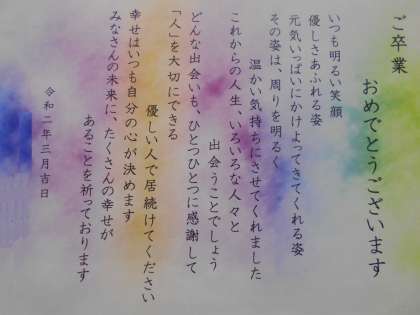 ご卒業
おめでとうございます
いつも明るい笑顔
優しさあふれる姿
元気いっぱいにかけよってきてくれる姿
その姿は、周りを明るく
温かい気持ちにさせてくれました
これからの人生、いろいろな人々と
出会うことでしょう
どんな出会いも、ひとつひとつに感謝して
「人」を大切にできる
優しい人で居続けてください
幸せはいつも自分の心が決めます
みなさんの未来に、たくさんの幸せが
あることを祈っております
令和二年三月吉日